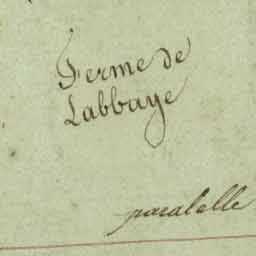 Ferme de
Labbaye
paralelle